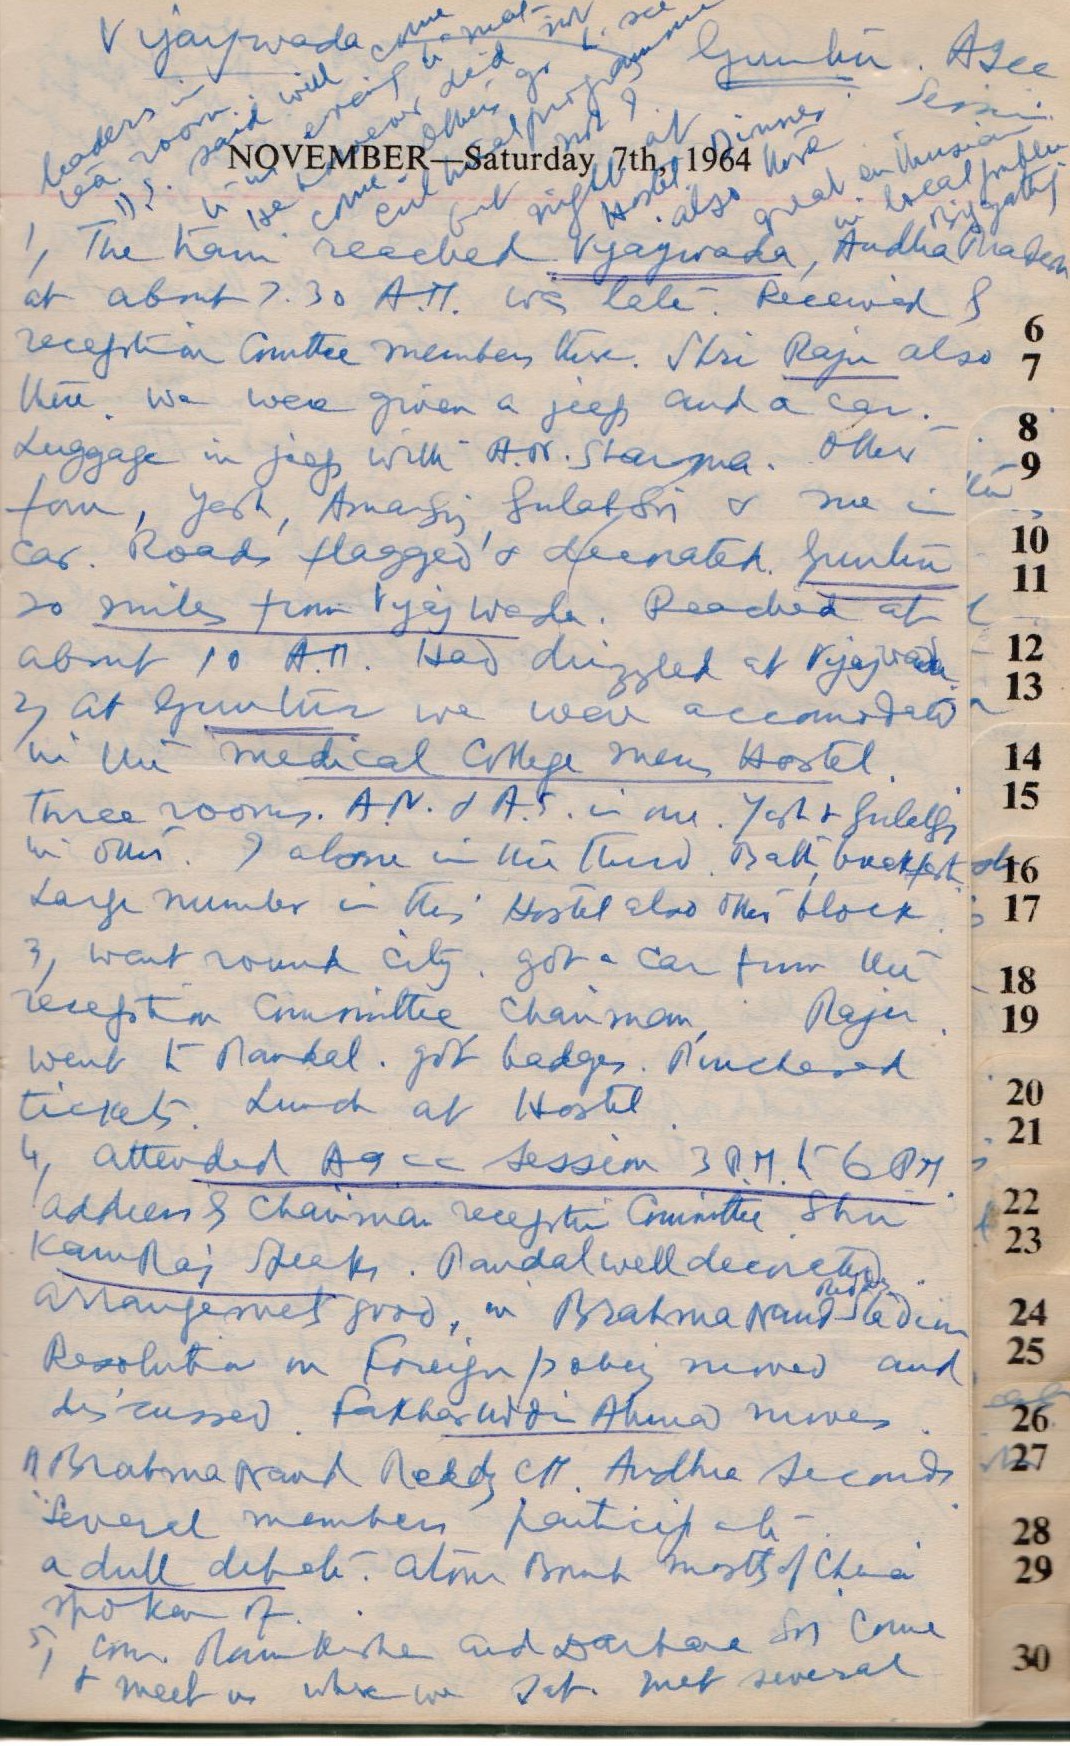 Vijaywada
Guntur. AICC
Session
NOVEMBER—Saturday 7th, 1964
1, The train reached Vijaywada, Andhra Pradesh
at about 7.30 A.M. was late. Received by
reception Comttee members there. Shri Raju also
there. We were given a jeep and a car.
Luggage in jeep with A.N. Sharma. Other
four, Yash, Amarji, Gulatiji & me in
car. Roads flagged & decorated. Guntur
20 miles from Vijaywada. Reached at
about 10 A.M. Had drizzled at Vijaywada
2, At Guntur we were accomodated
in the medical College mens Hostel.
Three rooms. A.N. & A.S. in one. Yash & Gulatiji
in other. I alone in the third. Bath, breakfast.
Large number in this Hostel also other block
3, went round city. got a car from the
reception Committee Chairman, Raju.
went to Pandal. got badges. Purchased
tickets. Lunch at Hostel.
4, attended AICC session 3 P.M. to 6 P.M.
address by Chairman reception Committee Shri
KamRaj speaks. Pandal well decorated.
arrangemets good, in Brahma Nand Reddy Stadium
Resolution on Foreign policy moved and
discussed. Fakharuddin Ahmad moves
Brahma Nand Reddy CM. Andhra seconds
Several members participate.
a dull debate. Atom Bomb mostly of China
spoken of.
5, Com. Ram Kishan and Darbara Sing come
& meet us where we sat. met several
leaders in
tea room.
said will come
in evening
he however did not
come. Others go to see
cultural programme
but not I.
night at
Hostel. Dinner
also here
great enthusiasm
in local public
Big gathg
6
7
8
9
10
11
12
13
14
15
16
17
18
19
20
21
22
23
24
25
26
27
28
29
30